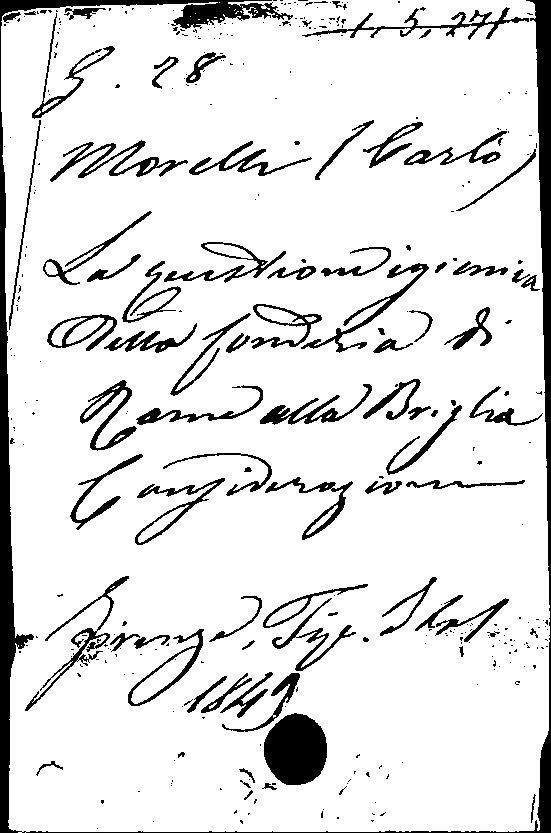 1, 5, 271
G. 28
Morelli (Carlo)
La questione igienica
della fonderia di
Rame alla Briglia
Considerazioni
Firenze, Tip.
1849